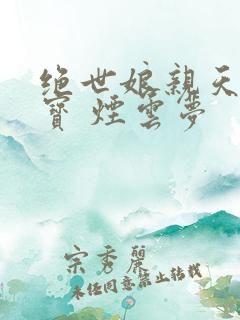 绝世娘亲天
寶 煙雲夢
宗秀麗
未经同意禁止转载